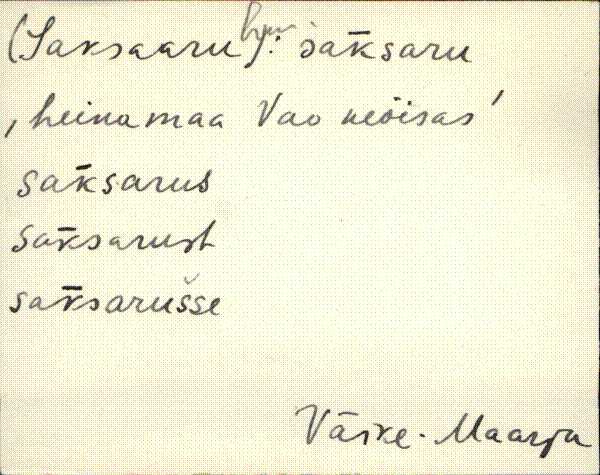 (Saksaaru): sak̄saru
‚heinamaa Vao mõisas’
sak̄sarus
sak̄sarust
sak̄sarušse
Väike-Maarja